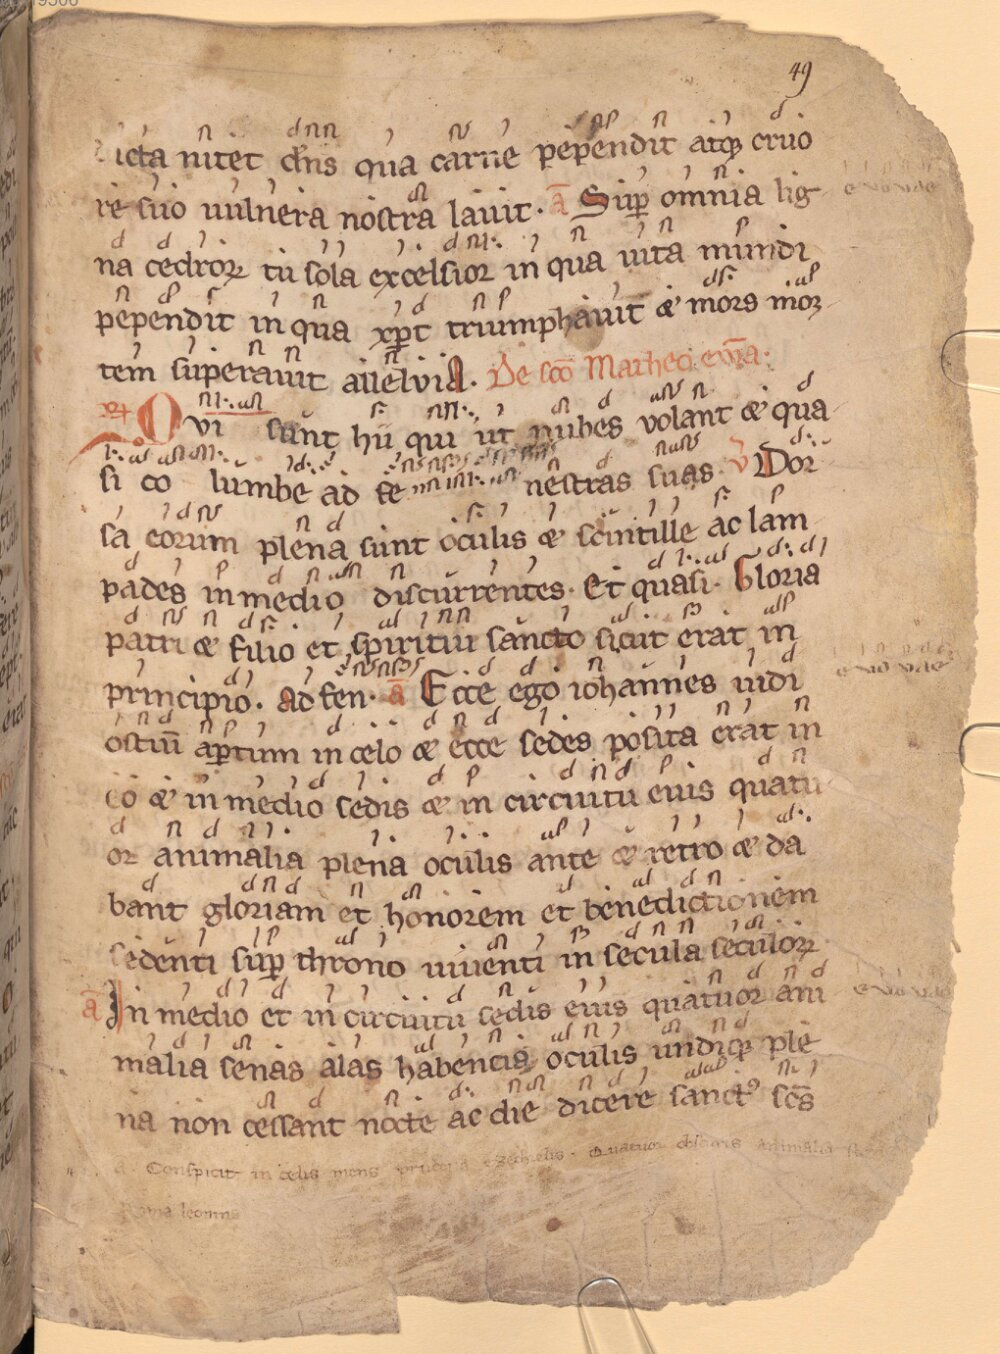 49
dicta nitet dn̄s qua carne pependit atq; cruo
re suo uulnera nostra lauit. ā Sup̱ omnia lig
na cedroꝝ tu sola excelsior in qua uita mundi
pependit in qua xp̄c triumphauit & mors moꝝ
tem superauit aÆeluia. De sc̄o Matheo
Qvi sunt hii qui ut nubes volant & qua
si co lumbe ad fe nestras suas. v̄ Dor
sa eorum plena sunt oculis & scintille ac lam
pades in medio discurrentes. Et quasi. Gloria
patri & filio et spiritui sancto sicut erat in
principio. Ad fen. ā Ecce ego iohannes uidi
ostiū ap̱tum in celo & ecce sedes posita erat in
eo & in medio sedis & in circuitu eius quatu
or animalia plena oculis ante & retro & da
bant gloriam et honorem et benedictionem
sedenti sup̱ throno uiuenti in secula seculoꝝ
ā In medio et in circuitu sedis eius quatuor ani
malia senas alas habentia oculis undiq; ple
na non cessant nocte ac die dicere sanctꝰ sc̄s
a. Conspicit in celis mens ezechielis. Quatuor animalia